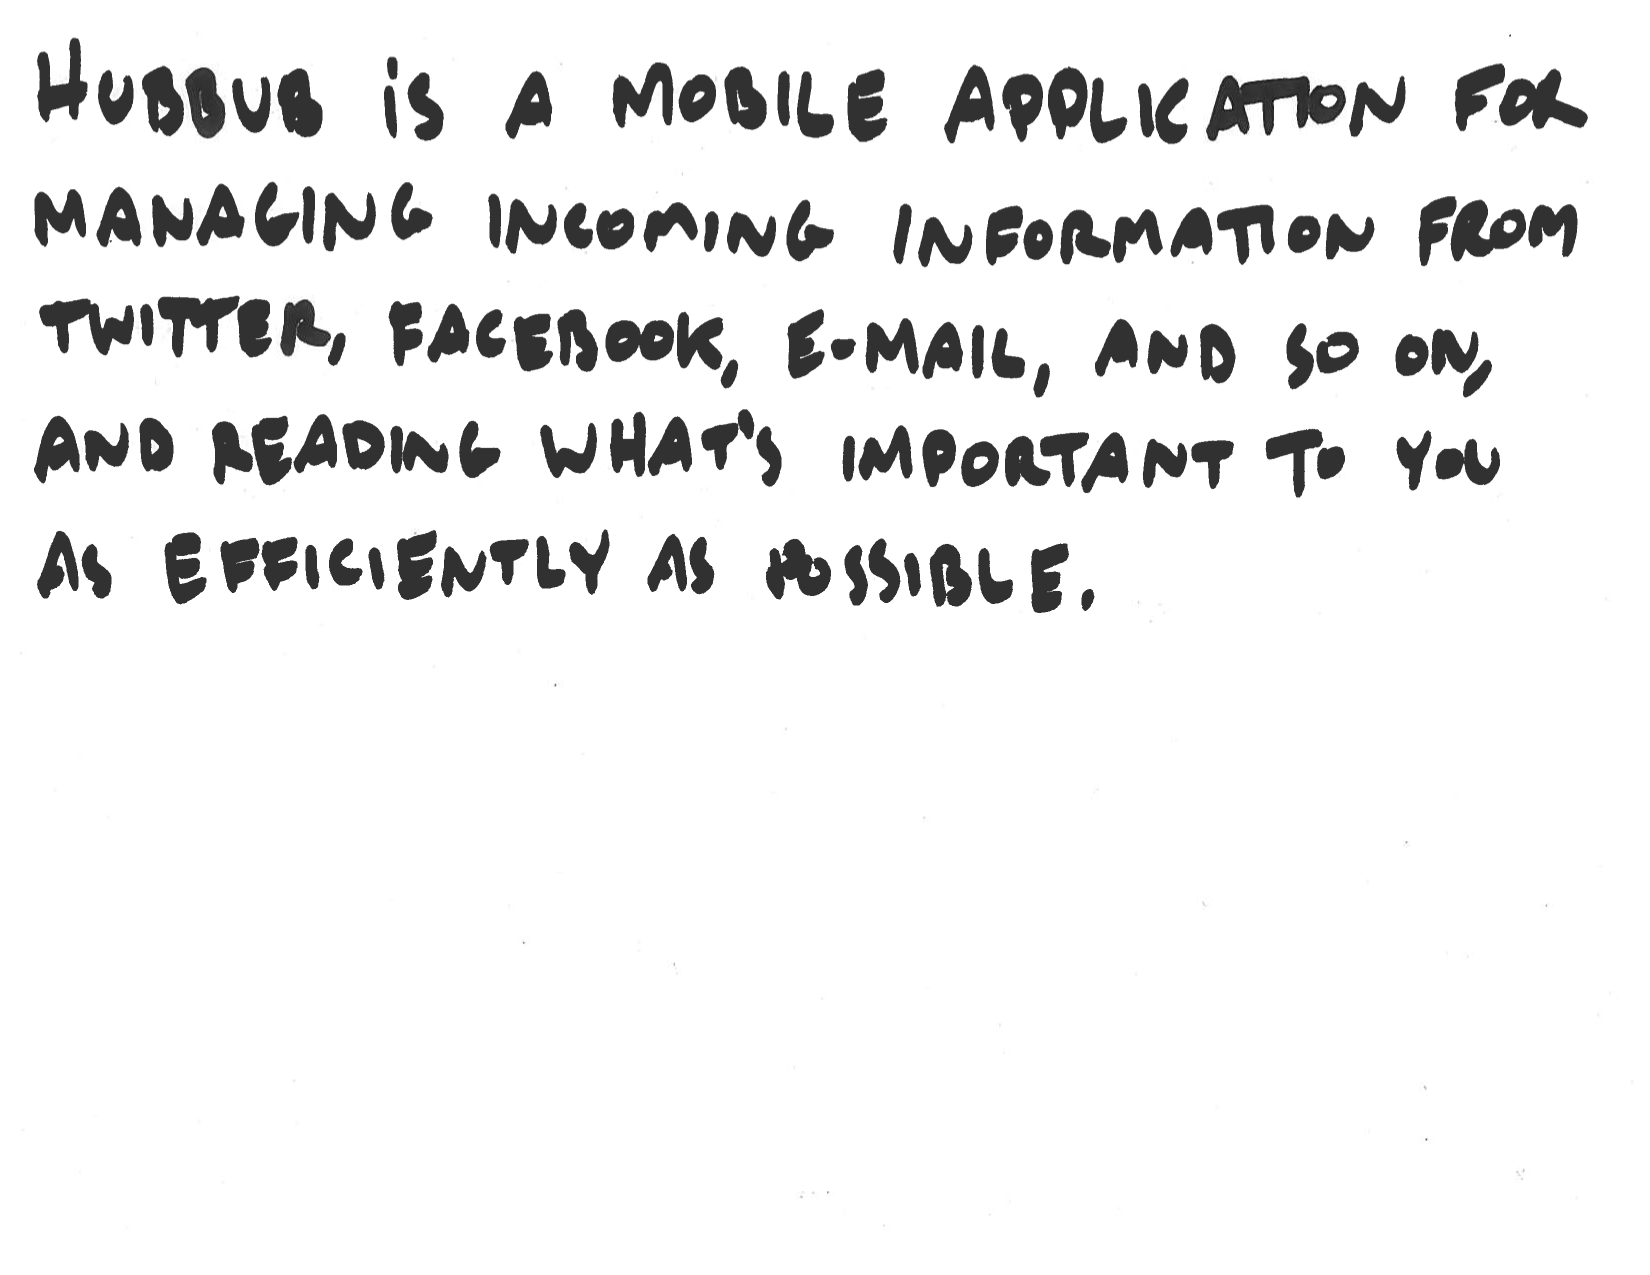 HUBBUB iS A MOBILE APPLICATION FOR
MANAGING INCOMING INFORMATION FROM
TWITTER, FACEBOOK, E-MAIL, AND SO ON,
AND READING WHAT'S IMPORTANT TO YOU
AS EFFICIENTLY AS POSSIBLE.